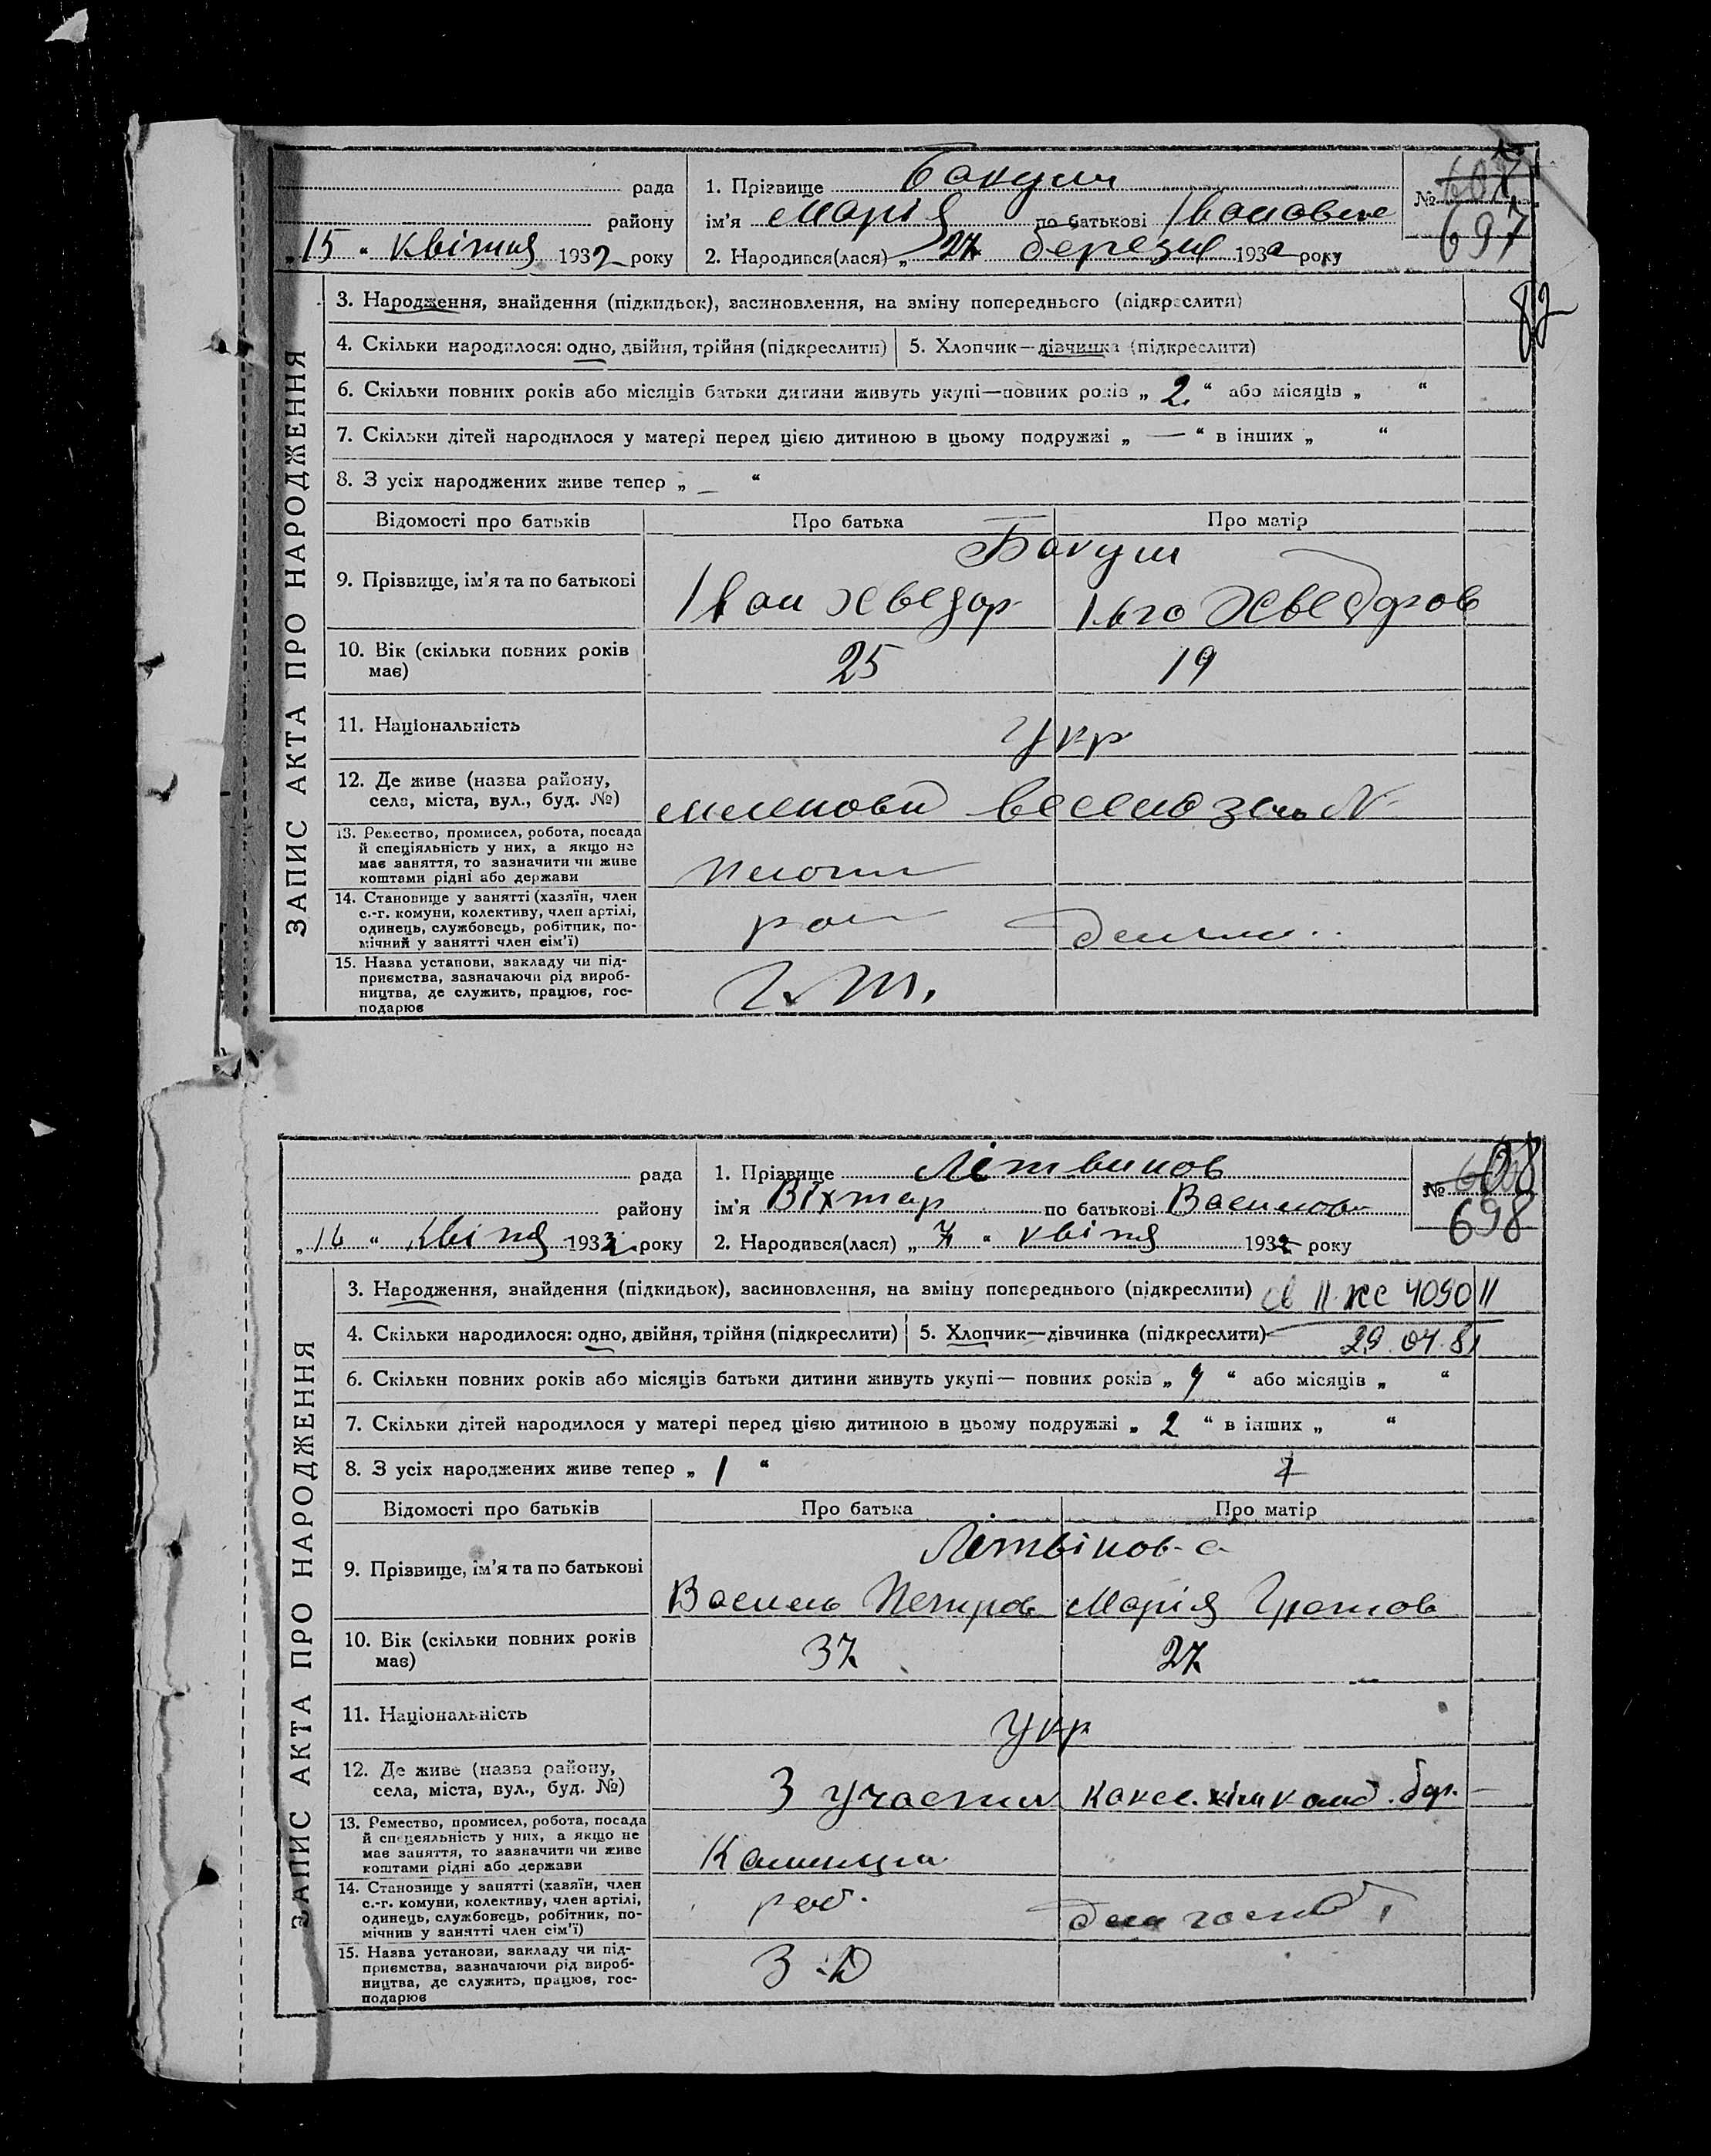 рада
району
„15 “ квітня 1932 року
1. Прізвище Бакуш
ім'я Марія по батькові Івановна
2. Народився(лася) „ 27 березня 1932 року
№ 697
82
ЗАПИС АКТА ПРО НАРОДЖЕННЯ
3. Народження, знайдення (підкидьок), засиновлення, на зміну попереднього (підкреслити)
4. Скільки народилося: одно, двійня, трійня (підкреслити)
5. Хлопчик—дівчинка (підкреслити)
6. Скільки повних років або місяців батьки дитини живуть укупі—повних років „ 2 “ або місяців „ “
7. Скільки дітей народилося у матері перед цією дитиною в цьому подружжі „ — “ в інших „ “
8. З усіх народжених живе тепер „ — “
Відомості про батьків
Про батька
Про матір
9. Прізвище, ім'я та по батькові
Бакуш
Іван Хведор
Хведоров
10. Вік (скільки повних років має)
25
19
11. Національність
Укр
12. Де живе (назва району, села, міста, вул., буд. №)
13. Ремество, промисел, робота, посада
й спеціяльність у них, а якщо не
має заняття, то зазначити чи живе
коштами рідні або держави
14. Становище у занятті (хазяїн, член
с.-г. комуни, колективу, член артілі,
одинець, службовець, робітник, по-
мічний у занятті член сім'ї)
15. Назва установи, закладу чи під-
приємства, зазначаючи рід вироб-
ництва, де служить, працює, гос-
подарює
рада
району
„16 “ квітня 1932 року
1. Прізвище Літвинов
ім'я Віхтар по батькові Васильов
2. Народився(лася) „ 7 “ квітня 1932 року
№ 698
ЗАПИС АКТА ПРО НАРОДЖЕННЯ
3. Народження, знайдення (підкидьок), засиновлення, на зміну попереднього (підкреслити)
св II ЖС 409011
29.04.81
4. Скільки народилося: одно, двійня, трійня (підкреслити)
5. Хлопчик—дівчинка (підкреслити)
6. Скільки повних років або місяців батьки дитини живуть укупі— повних років „ 9 “ або місяців „ “
7. Скільки дітей народилося у матері перед цією дитиною в цьому подружжі „ 2 “ в інших „ “
8. З усіх народжених живе тепер „ 1 “
Відомості про батьків
Про батька
Про матір
9. Прізвище, ім'я та по батькові
Літвінов-а
Василь Петров
Марія Гратов
10. Вік (скільки повних років має)
37
27
11. Національність
Укр
12. Де живе (назва району, села, міста, вул., буд. №)
3 участок
13. Ремество, промисел, робота, посада
й спецеяльність у них, а якщо не
має заняття, то зазначити чи живе
коштами рідні або держави
14. Становище у занятті (хазяїн, член
с.-г. комуни, колективу, член артілі,
одинець, службовець, робітник, по-
мічнив у занятті член сім'ї)
роб.
15. Назва установи, закладу чи під-
приємства, зазначаючи рід вироб-
ництва, де служить, працює, гос-
подарює